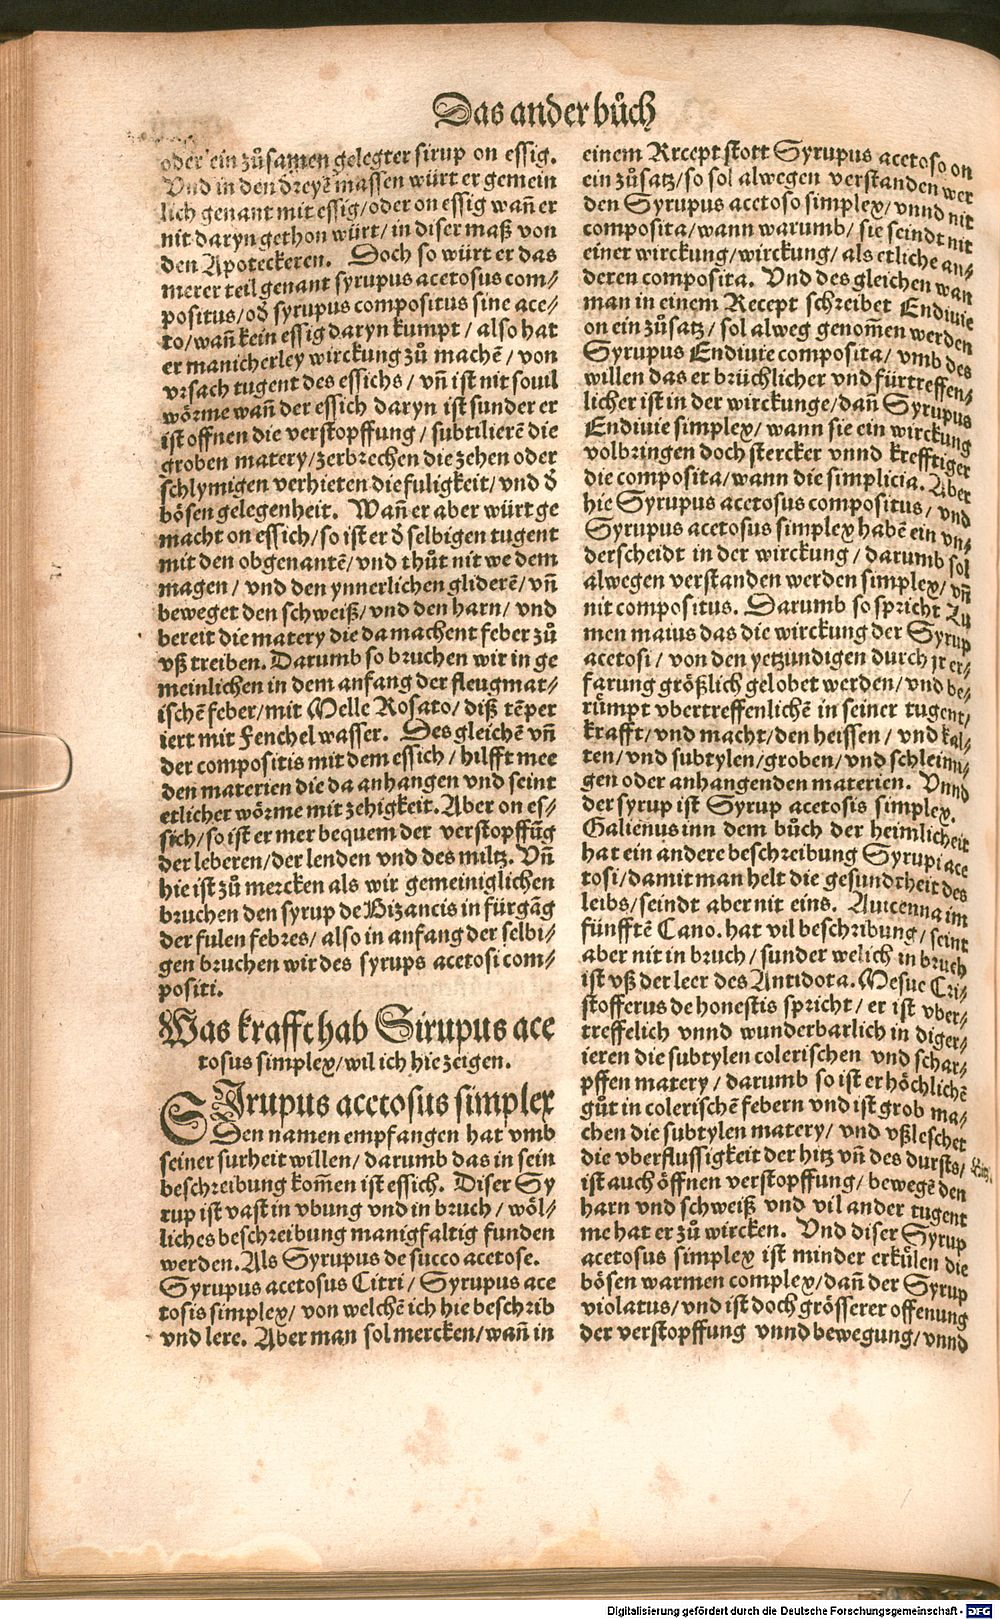 Das ander bůch
oder ein zůsamen gelegter sirup on essig.
Vnd in den dreyē massen würt er gemein
lich genant mit essig/oder on essig wañ er
nit daryn gethon würt/in diser maß von
den Apoteckeren. Doch so würt er das
merer teil genant syrupus acetosus com⸗
positus/oď syrupus compositus sine ace⸗
to/wañ kein essig daryn kumpt/also hat
er manicherley wirckung zů machē/von
vrsach tugent des essichs/vñ ist nit souil
wörme wañ der essich daryn ist sunder er
ist offnen die verstopffung/subtilierē die
groben matery/zerbrechen die zehen oder
schlymigen verhieten die fuligkeit/vnd ď
bösen gelegenheit. Wañ er aber würt ge
macht on essich/so ist er ď selbigen tugent
mit den obgenantē/vnd thůt nit we dem
magen/vnd den ynnerlichen gliderē/vñ
beweget den schweiß/vnd den harn/vnd
bereit die matery die da machent feber zů
vß treiben. Darumb so bruchen wir in ge
meinlichen in dem anfang der fleugmat⸗
ischē feber/mit Melle Rosato/diß tēper
iert mit Fenchel wasser. Des gleichē vñ
der compositis mit dem essich/hilfft mee
den materien die da anhangen vnd seint
etlicher wörme mit zehigkeit. Aber on es⸗
sich/so ist er mer bequem der verstopffūg
der leberen/der lenden vnd des miltz. Vñ
hie ist zů mercken als wir gemeiniglichen
bruchen den syrup de Bizancis in fürgāg
der fulen febres/also in anfang der selbi⸗
gen bruchen wir des syrups acetosi com⸗
positi.
Was krafft hab Sirupus ace
tosus simplex/wil ich hie zeigen.
SJrupus acetosus simplex
Den namen empfangen hat vmb
seiner surheit willen/darumb das in sein
beschreibung kom̄en ist essich. Diser Sy
rup ist vast in vbung vnd in bruch/wöl⸗
liches beschreibung manigfaltig funden
werden. Als Syrupus de succo acetose.
Syrupus acetosus Citri/Syrupus ace
tosis simplex/von welchē ich hie beschrib
vnd lere. Aber man sol mercken/wañ in
einem Rrcept stott Syrupus acetoso on
ein zůsatz/so sol alwegen verstanden wer
den Syrupus acetoso simplex/vnnd nit
composita/wann warumb/sie seindt nit
einer wirckung/wirckung/als etliche an⸗
deren composita. Vnd des gleichen wan
man in einem Recept schreibet Endiuie
on ein zůsatz/sol alweg genom̄en werden
Syrupus Endiuie composita/vmb des
willen das er brüchlicher vnd fürtreffen⸗
licher ist in der wirckunge/dañ Syrupus
Endiuie simplex/wann sie ein wirckung
volbringen doch stercker vnnd krefftiger
die composita/wann die simplicia. Aber
hie Syrupus acetosus compositus/vnd
Syrupus acetosus simplex habē ein vn⸗
derscheidt in der wirckung/darumb sol
alwegen verstanden werden simplex/vñ
nit compositus. Darumb so spricht Lu
men maius das die wirckung der Syrup
acetosi/von den yetzundigen durch jr er⸗
farung größlich gelobet werden/vnd be⸗
růmpt vbertreffenlichē in seiner tugent/
krafft/vnd macht/den heissen/vnd kal⸗
ten/vnd subtylen/groben/vnd schleimi⸗
gen oder anhangenden materien. Vnnd
der syrup ist Syrup acetosis simplex.
Galienus inn dem bůch der heimlicheit
hat ein andere beschreibung Syrupi ace
tosi/damit man helt die gesundtheit des
leibs/seindt aber nit eins. Auicenna im
fünfftē Cano. hat vil beschribung/seint
aber nit in bruch/sunder welich in bruch
ist vß der leer des Antidota. Mesue Cri⸗
stofferus de honestis spricht/er ist vber⸗
treffelich vnnd wunderbarlich in diger⸗
ieren die subtylen colerischen vnd schar⸗
pffen matery/darumb so ist er höchlichē
gůt in colerischē febern vnd ist grob ma⸗
chen die subtylen matery/vnd vßleschet
die vberflussigkeit der hitz vñ des dursts/
ist auch öffnen verstopffung/bewegē den
harn vnd schweiß vnd vil ander tugent
me hat er zů wircken. Vnd diser Syrup
acetosus simplex ist minder erkůlen die
bösen warmen complex/dañ der Syrup
violatus/vnd ist doch grösserer offenung
der verstopffung vnnd bewegung/vnnd
Digitalisierung gefördert durch die Deutsche Forschungsgemeinschaft - DFG